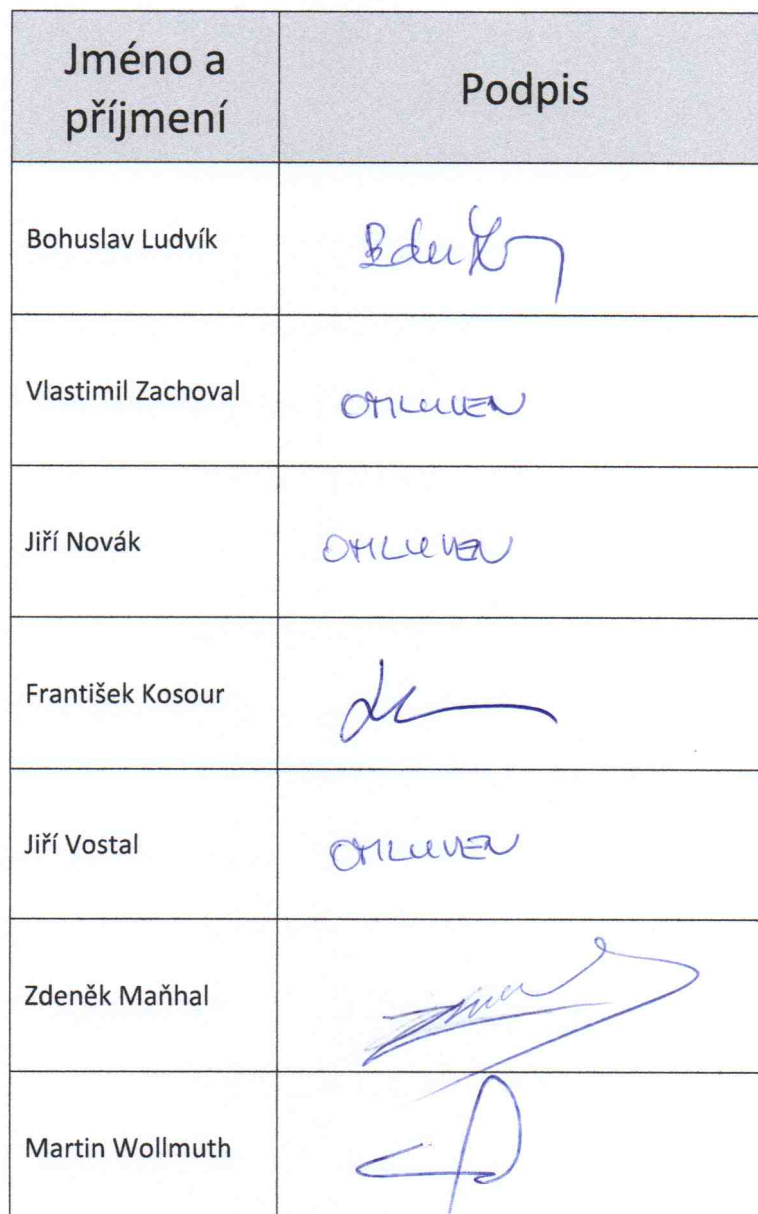 Jméno a
příjmení
Podpis
Bohuslav Ludvík
Vlastimil Zachoval
OMLUVEN
Jiří Novák
OMLUVEN
František Kosour
Jiří Vostal
OMLUVEN
Zdeněk Maňhal
Martin Wollmuth